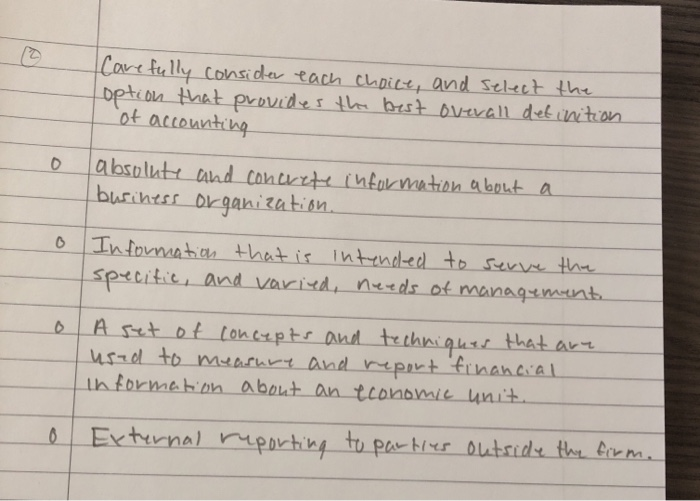 ② Carefully consider each choice, and select the
option that provides the best overall definition
of accounting
o absolute and concrete information about a
business organization.
o Information that is intended to serve the
specific, and varied, needs of management.
o A set of concepts and techniques that are
used to measure and report financial
information about an economic unit.
o External reporting to parties outside the firm.